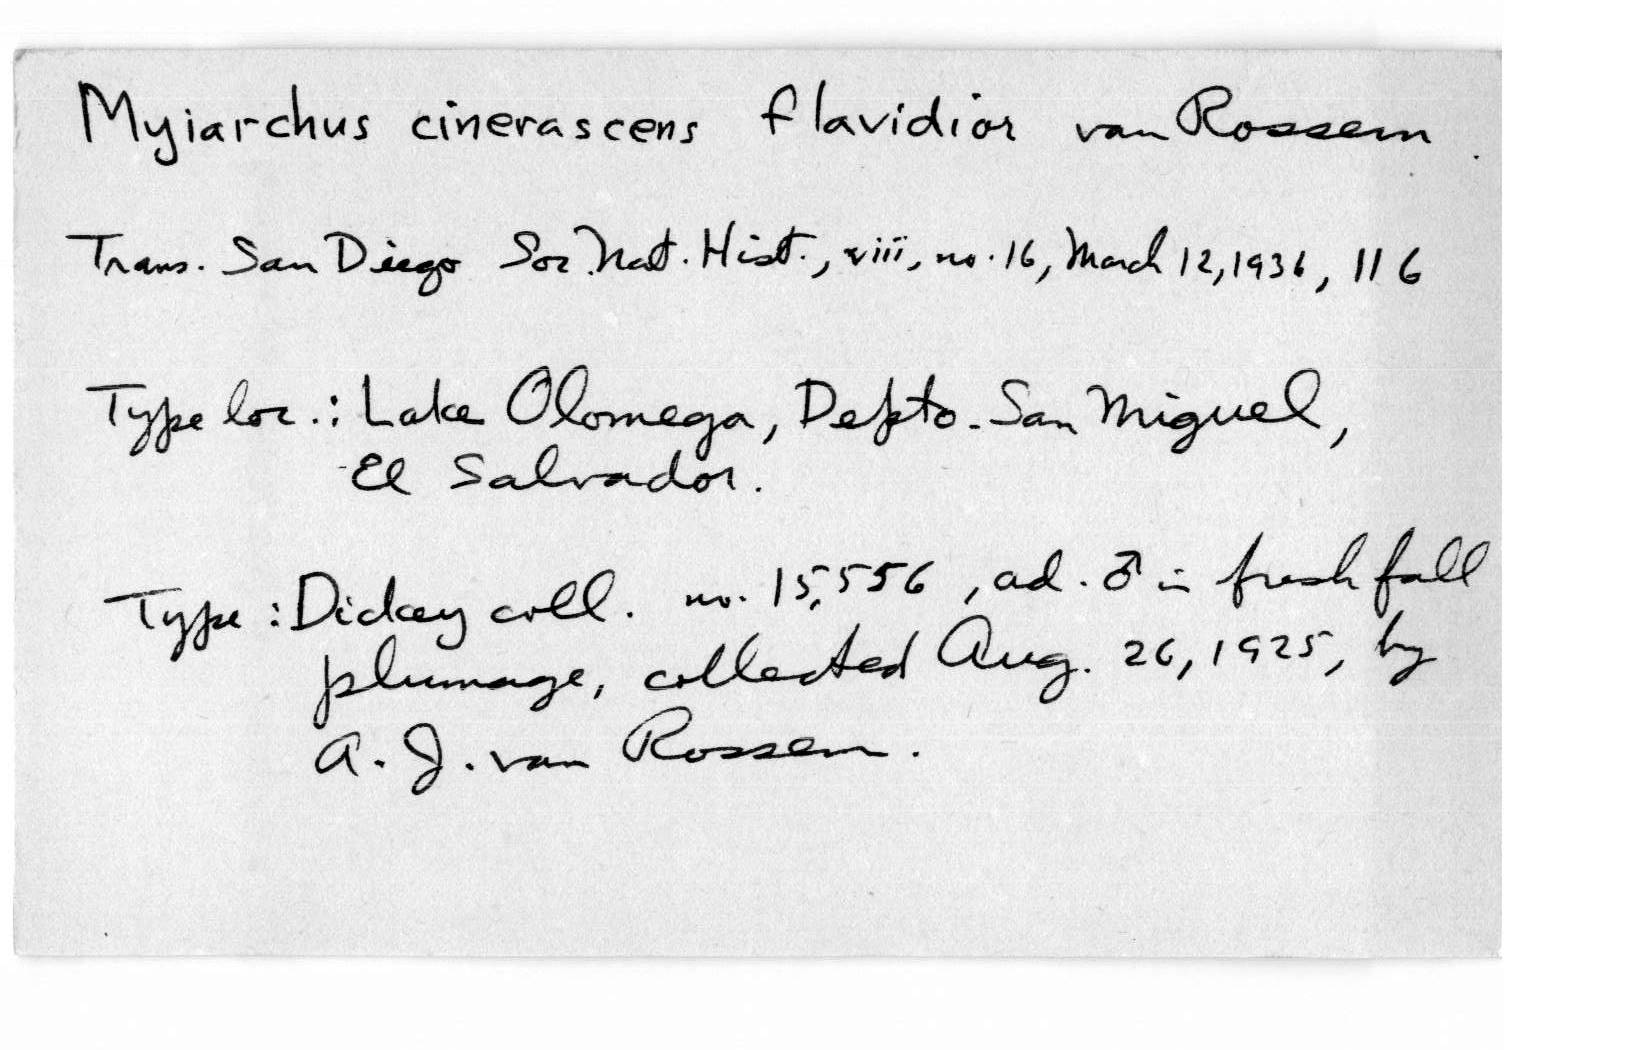 Myiarchus cinerascens flavidior van Rossem.
Trans. San Diego Soc. Nat. Hist., viii, no. 16, March 12, 1936, 116
Type loc.: Lake Olomega, Depto. San Miguel,
El Salvador.
Type: Dickey coll. no. 15,556, ad. ♂ in fresh fall
plumage, collected Aug. 26, 1925, by
A. J. van Rossem.